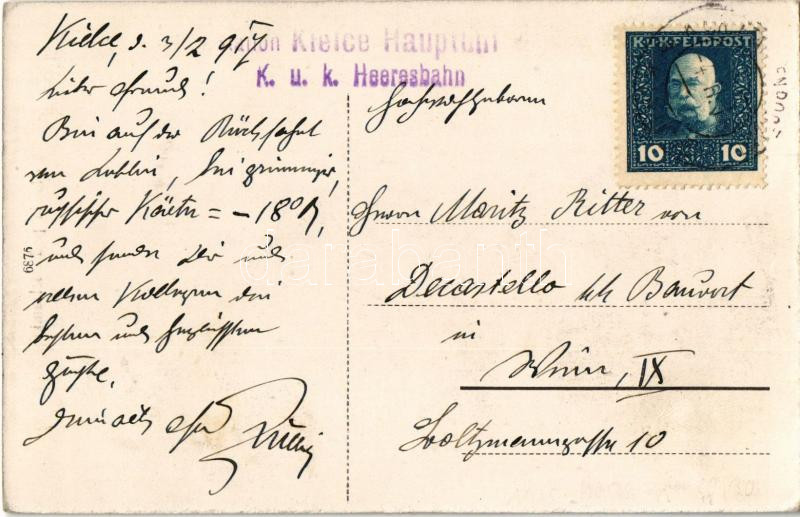 Kielce, d. 3/2 917
Lieber Freund!
Bin auf der Rückfahrt
von Lublin, bei grimmiger,
russischer Kälte = -18°R,
und sende Dir und
allen Kollegen die
besten und herzlichsten
Grüße,
Dein alter
Station Kielce Hauptbhf
K. u. k. Heeresbahn
K.U.K. FELDPOST
10 10
Hochwohlgeboren
Herrn Moritz Ritter von
Decastello k.k. Baurat
in
Wien, IX
Boltzmanngasse 10
9739
darabanth